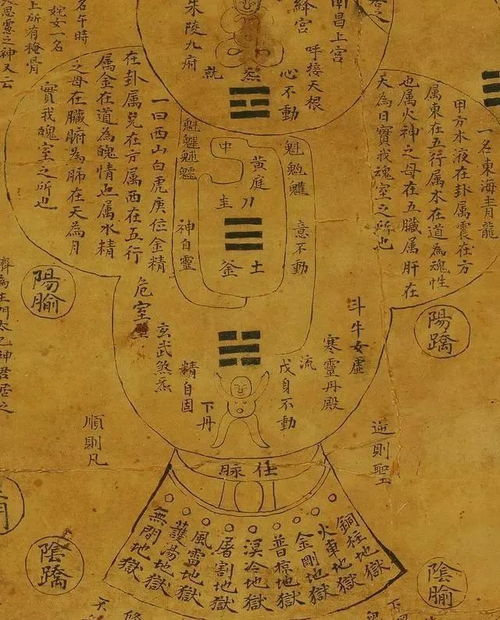 南昌上宮
絳宮
呼接天根
心不動
朱陵九府
名午時
姹女一名
上所有掩骨
大思慮之神又云
一名東海青龍
甲方木液在卦属震在方
属東在五行属木在道為魂性
也属火神之母在五臟属肝在
天為日實我魂室之所也
一曰西山白虎庚位金精
在卦属兌在方属西在五行
属金在道為魄情也属水精
之母在臟腑為肺在天為月
實我魄室之所也
魁𩲃
中
黄庭
圭
刀
土
釜
意不動
神自靈
陽腧
陽蹻
斗牛女虛
危室壁
寒靈丹殿
玄武煞炁
流
戊身不動
精自固
下丹
順則凡
逆則聖
任脉
銅柱地獄
火車地獄
金剛地獄
普掠地獄
溟泠地獄
屠割地獄
風雷地獄
護湯地獄
無間地獄
陰蹻
陰腧